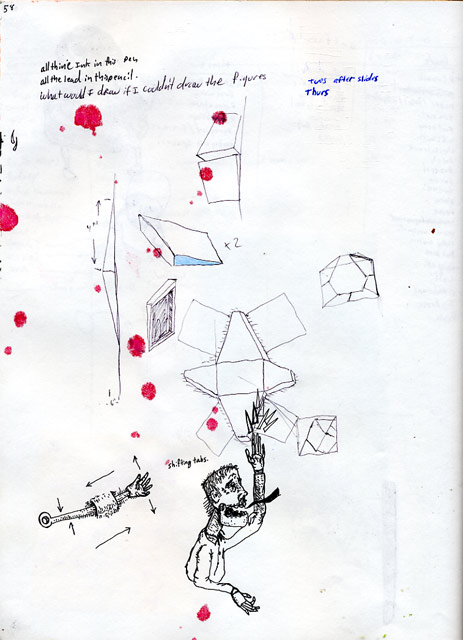 58
all the Ink in this Pen
all the lead in this pencil.
What would I draw if I couldn't draw the Figures
Tues after slides
Thurs
x2
shifting tabs.